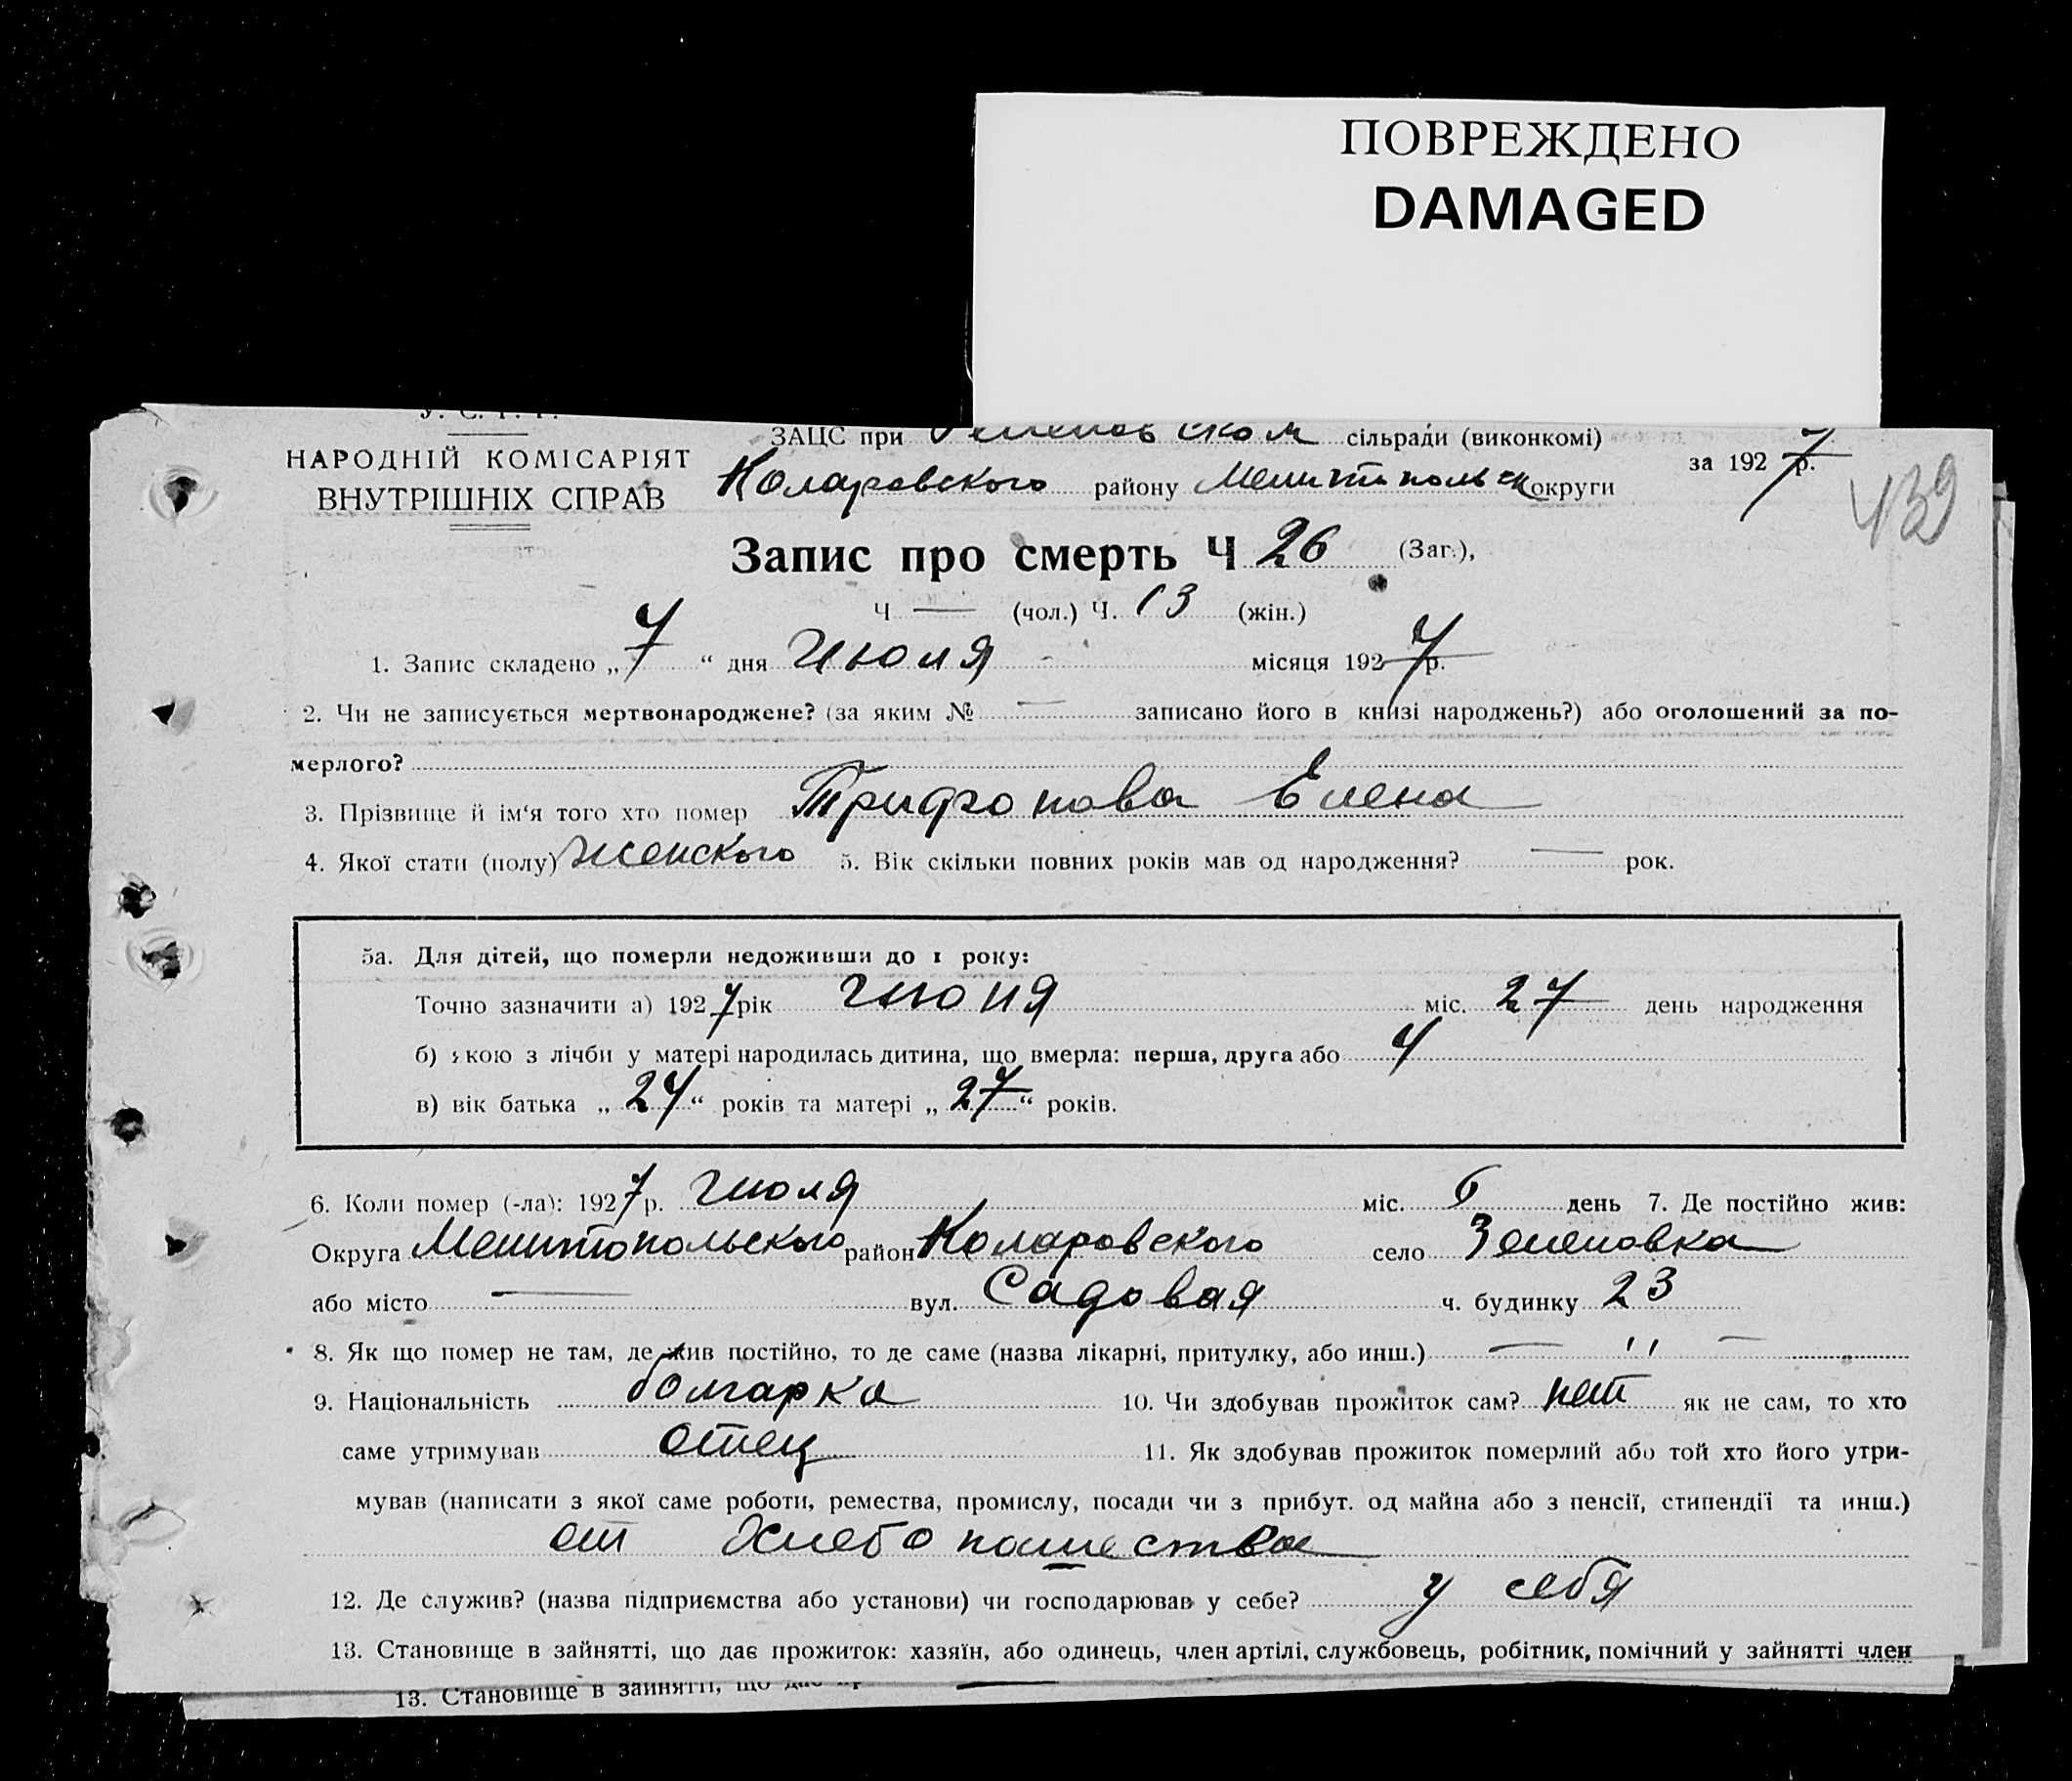 ПОВРЕЖДЕНО
DAMAGED
У. С. Р. Р.
НАРОДНІЙ КОМІСАРІЯТ
ВНУТРІШНІХ СПРАВ
ЗАЦС при Зеленовском сільради (виконкомі)
Коларовского району Мелитопольск округи
за 1927 р.
139
Запис про смерть Ч 26 (Заг.),
Ч — (чол.) Ч. 13 (жін.)
1. Запис складено „7“ дня Июля місяця 1927 р.
2. Чи не записується мертвонароджене? (за яким № — записано його в книзі народжень?) або оголошений за по-
мерлого?
3. Прізвище й ім‘я того хто помер Трифонова Елена
4. Якої стати (полу) Женского 5. Вік скільки повних років мав од народження? — рок.
5а. Для дітей, що померли недоживши до 1 року:
Точно зазначити а) 1927 рік Июня міс. 27 день народження
б) якою з лічби у матері народилась дитина, що вмерла: перша, друга або 4
в) вік батька „24“ років та матері „27“ років.
6. Коли помер (-ла): 1927 р. Июля міс. 6 день 7. Де постійно жив:
Округа Мелитопольского район Коларовского село Зеленовка
або місто — вул. Садовая ч. будинку 23
8. Як що помер не там, де жив постійно, то де саме (назва лікарні, притулку, або инш.) — " —
9. Національність болгарка 10. Чи здобував прожиток сам? нет як не сам, то хто
саме утримував отец 11. Як здобував прожиток померлий або той хто його утри-
мував (написати з якої саме роботи, ремества, промислу, посади чи з прибут. од майна або з пенсії, стипендії та инш.)
от Хлебопашества
12. Де служив? (назва підприємства або установи) чи господарював у себе? у себя
13. Становище в зайнятті, що дає прожиток: хазяїн, або одинець, член артілі, службовець, робітник, помічний у зайнятті член
13. Становище в зайнятті, що дає